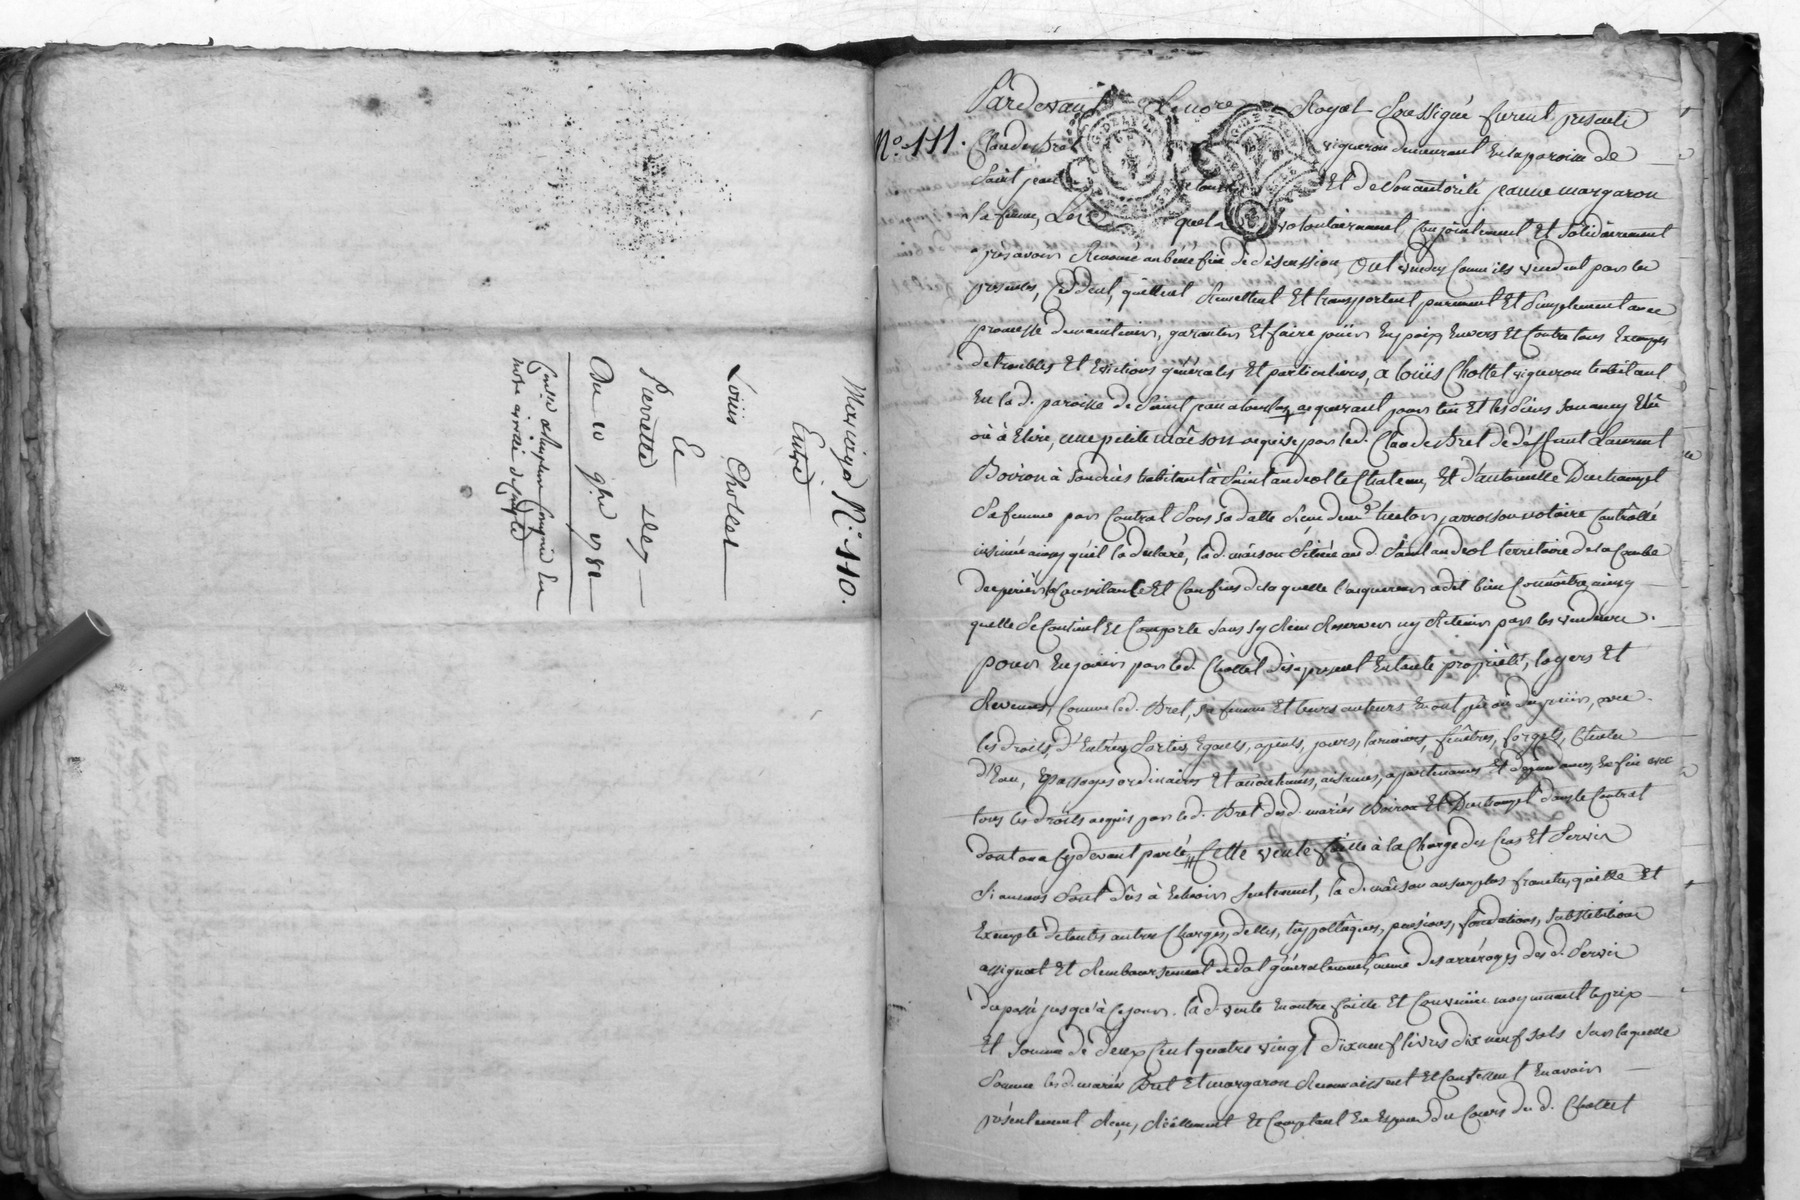 Mariage N.° 110.
Entre
Louis Chollet
Et
Pierrette
Du 10 9bre 1782
N.° 111.
Pardevant Le no.re Royal Soussigné furent présents
Claude Bret vigneron demeurant en la paroisse de
Saint jean et de Son autorité jeanne margaron
Sa femme, Lesquels volontairement Conjointement Et Solidairement
après avoir Renoncé au bénéfice de discussion, ont vendu Comme ils vendent par les
présentes, Cèddent, quittent Remettent Et transportent purement Et Simplement avec
promesse de maintenir, garantir Et faire jouir En paix Envers Et Contre tous Exempts
de troubles Et Evictions générales Et particulières, a louis Chollet vigneron habitant
En la d. paroisse de Saint jean acquerant pour lui Et les Siens Son amy Elû
où à Elire, une petite maison acquise par led. Claude Bret de déffunt Laurent
Boiron à Son décès habitant à Saint andeol le Chateau, Et d'antoinette Duchampt
Sa femme par Contrat Sous Sa datte Reçu notaire Controllé
insinué ainsy qu'il la declaré, la d. maison Située au d. Saint andeol territoire de la Combe
Consistance Et Confins de laquelle l'acquereur a dit bien Connoître ainsy
quelle Se Contient Et Comporte Sans Sy Rien Reserver ny Retenir par les vendeurs.
pour En jouir par led. Chollet dès à present En toute propriété, loyers Et
Revenus, Comme led. Bret, Sa femme Et leurs auteurs En ont jouï où dû jouir, avec
les droits d'Entrées, Sorties, Egouts, jours, larmiers, fenêtres, forgets, Chûtes
d'Eau, passages ordinaires Et accoutumés, aisances, apartenances Et dépendances, Enfin avec
tous les droits acquis par led. Bret desd. mariés Boiron Et Duchampt dans le Contrat
dont on a Cy devant parlé, Cette vente faite à la Charge des Cens Et Servis
Si aucuns Sont dûs à l'avenir Seulement, la d. maison au surplus franche, quitte Et
Exempte de toutes autres Charges, dettes, hypothèques, pensions, fondations, Substitutions
assignat Et Remboursement de dot généralement, même des arrérages des d. Servis
du passé jusqu'à Ce jour. la d. vente En outre faite Et Convenüe moyennant le prix
Et Somme de deux Cent quatre vingt dix neuf livres dix neuf Sols Sur laquelle
Somme lesd. mariés Bret Et margaron Reconnaissent Et Confessent En avoir
présentement Reçu, Réellement Et Comptant En Espèces du Cours du d. Chollet